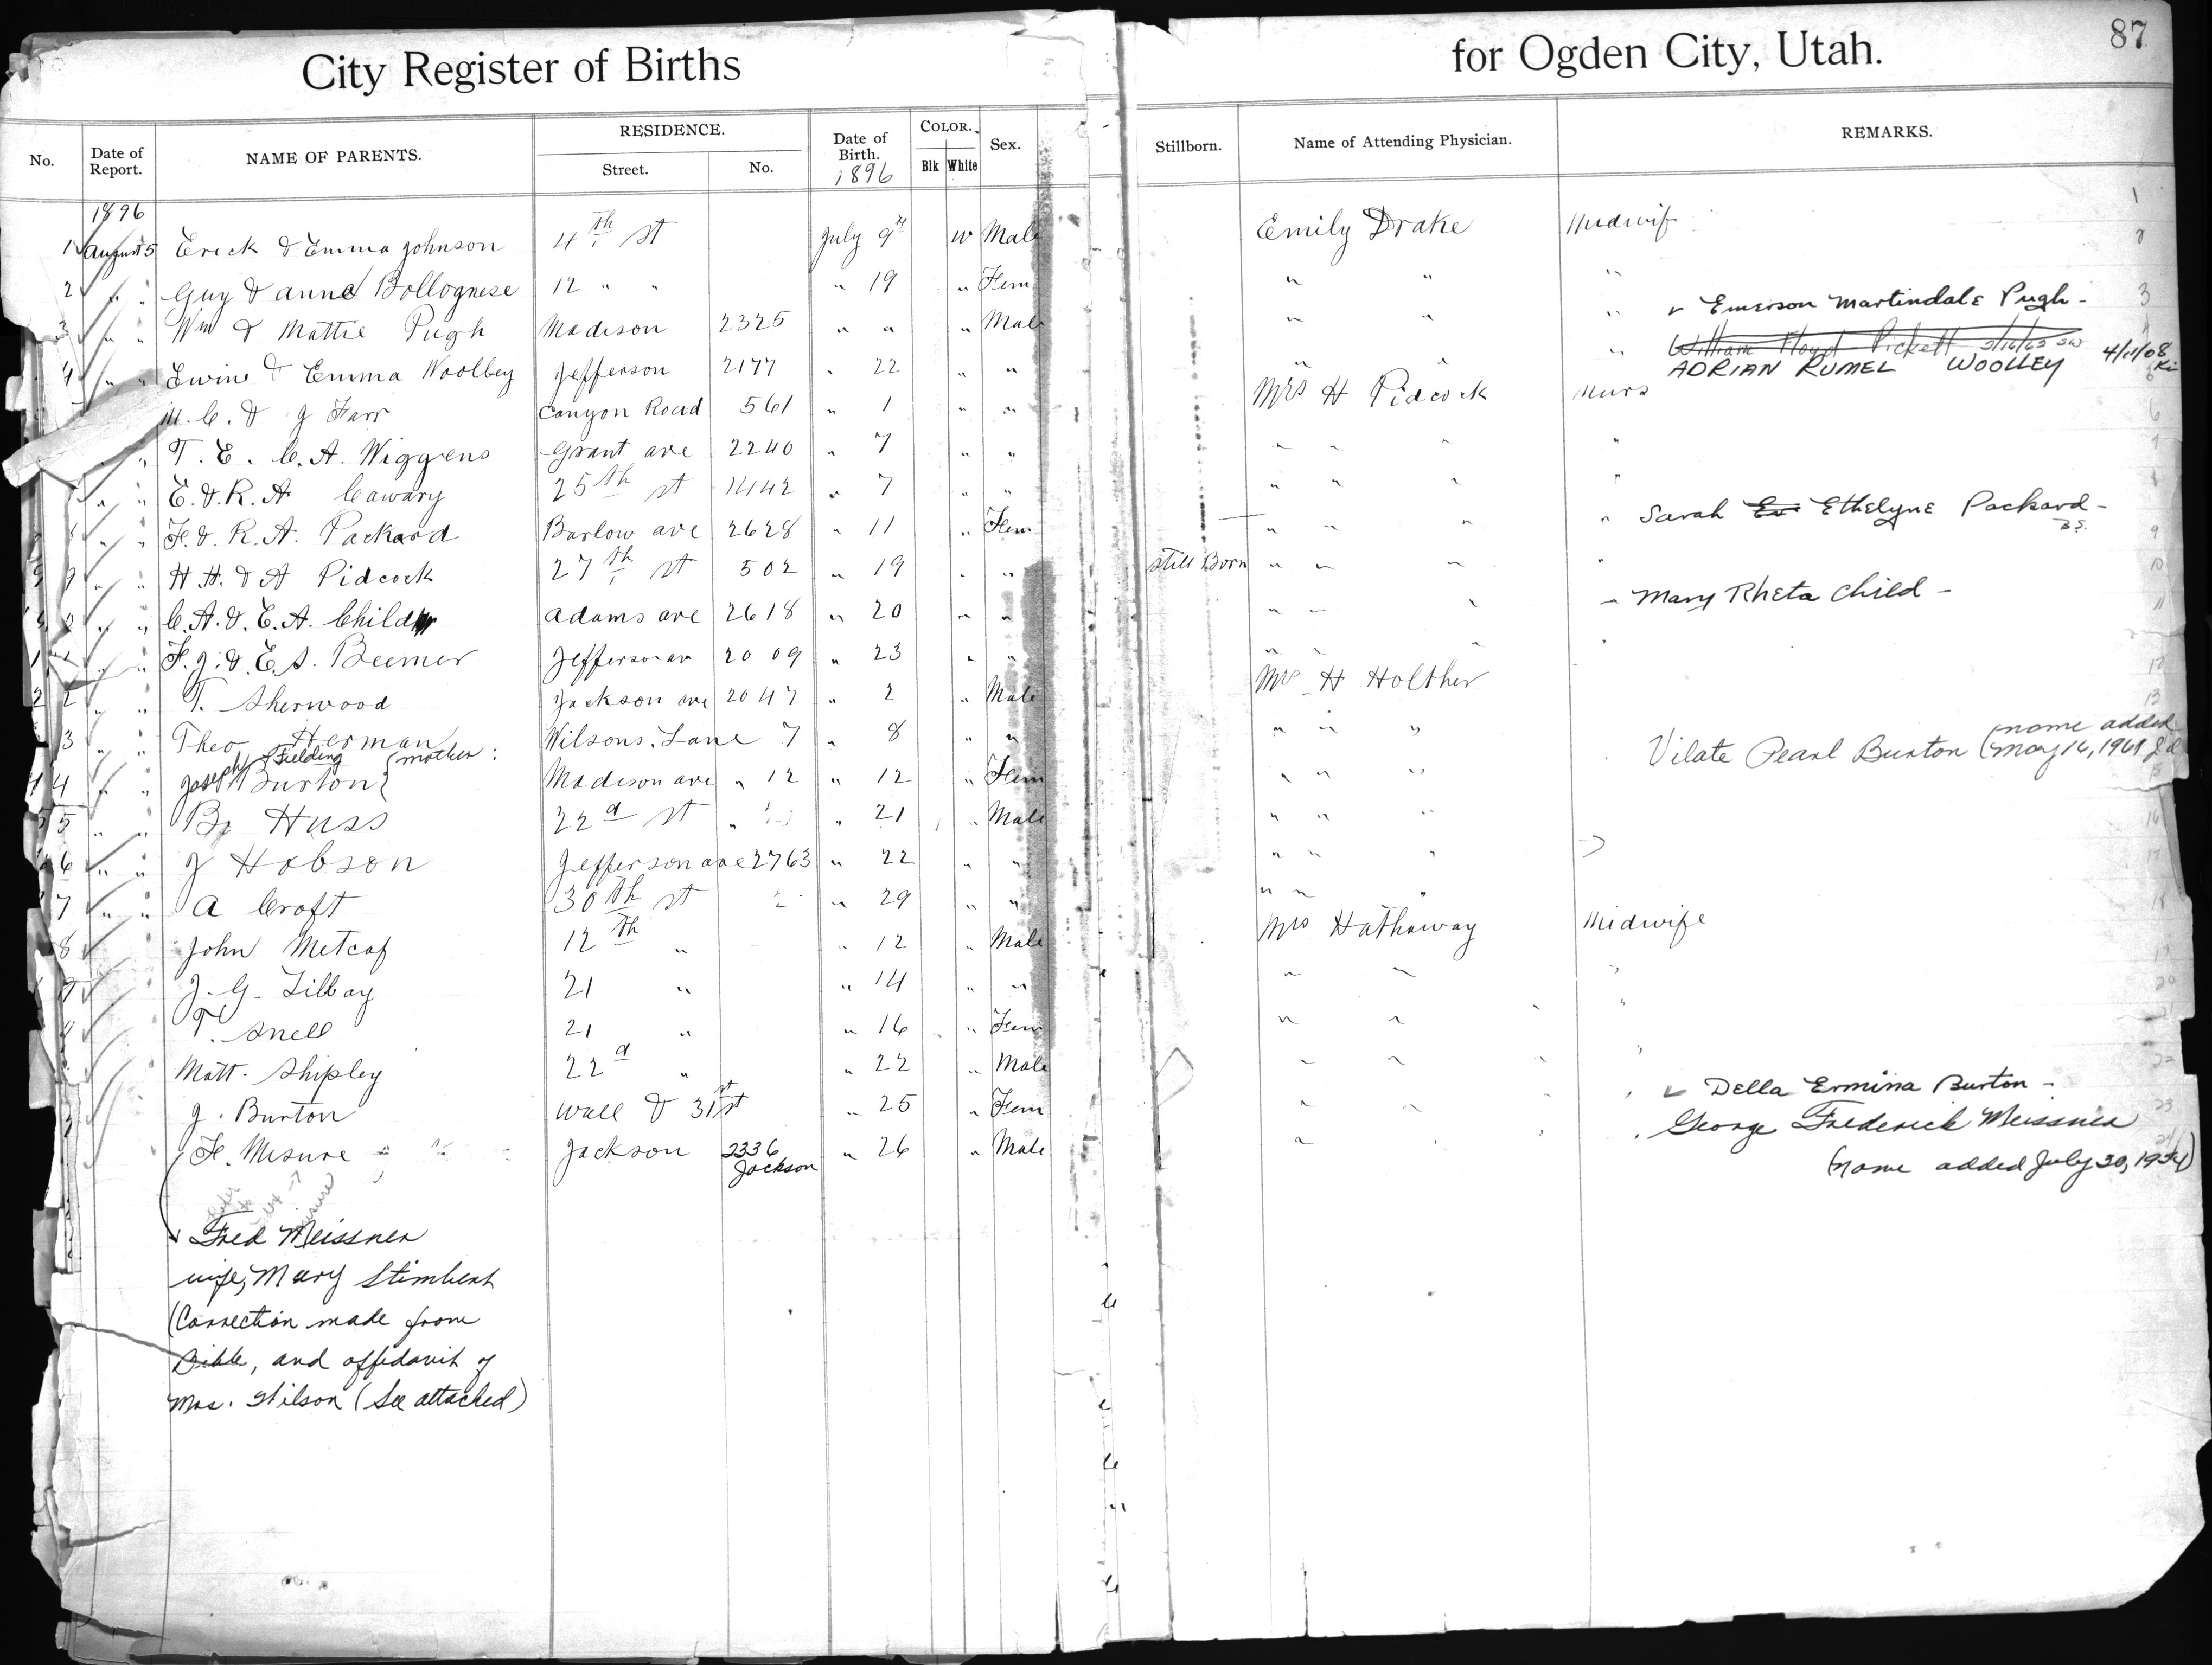 City Register of Births for Ogden City, Utah. 87
No. Date of Report. NAME OF PARENTS. RESIDENCE. Street. No. Date of Birth. 1896 COLOR. Blk White Sex. Stillborn. Name of Attending Physician. REMARKS.
1896
1 August 5 Erick & Emma Johnson 4th St July 9th W Male Emily Drake Midwif
2 " " Guy & Anna Bollognese 12 " " " 19 " Fem " " "
3 " " Wm & Mattie Pugh Madison 2325 " " " Male " " " Emerson Martindale Pugh -
William Floyd Pickett 3/16/65 SW
4 " " Ewin & Emma Woolley Jefferson 2177 " 22 " " " " " ADRIAN RUMEL WOOLLEY 4/11/08
M. C. & J Farr Canyon Road 561 " 1 " " Mrs H Pidcock Nurs
" T. E. C. A. Wiggens Grant ave 2240 " 7 " " " " " "
" " E. & R. A. Cawary 25th st 1442 " 7 " " " " " "
" " F. & R. A. Packard Barlow ave 2628 " 11 " Fem " " " " Sarah Ev Ethelyne Packard - B.S.
9 " " H. H. & A Pidcock 27th st 502 " 19 " " Still Born " " " "
" " C. A. & E. A. Child Adams ave 2618 " 20 " " " " " Mary Rheta Child -
1 " " F. J. & E. S. Beemer Jefferson av 2009 " 23 " " " " " "
2 " " T. Sherwood Jackson ave 2047 " 2 " Male Mrs H Holther
3 " " Theo Herman Wilsons Lane 7 " 8 " " " " "
4 " " Joseph Fielding Burton (mother: Madison ave " 12 " 12 " Fem " " " Vilate Pearl Burton (name added May 16, 1961
5 " " B. Huss 22d st " " 21 " Male " " "
6 " " J Hobson Jefferson ave 2763 " 22 " " " " "
7 " " A Croft 30th st " 29 " " " " "
8 John Metcaf 12th " " 12 " Male Mrs Hathaway Midwife
9 J. G. Tilbay 21 " " 14 " " " " "
T. Snell 21 " " 16 " Fem " " "
Matt. Shipley 22d " " 22 " Male " " "
J. Burton Wall & 31st " 25 " Fem " " " Della Ermina Burton -
F. Misure Jackson 2336 Jackson " 26 " Male " " " George Frederick Meissner
(Name added July 30, 1954)
Fred Meissner
wife, Mary Stimbert
(Correction made from
Bible, and affidavit of
Mrs. Stilson (See attached)